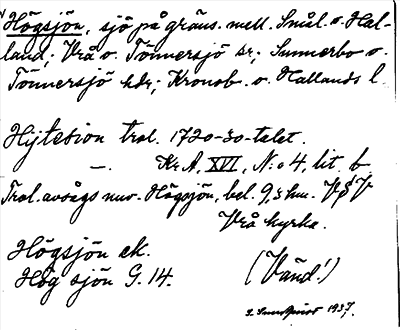 Högsjön, sjö på gräns. mell. Smål. o. Hal-
land; Vrå o. Tönnersjö sr; Sunnerbo o.
Tönnersjö hdr; Kronob. o. Hallands l.
Hijtesion trol. 1720-30-talet.
—. Kr. A, XVI, N:o 4, lit. b
Trol. avságs nuv. Högsjön, bel. 9,5 km. VSV
Vrå kyrka.
Högsjön ek.
Hög sjön G. 14.
(Vänd!)
1937.